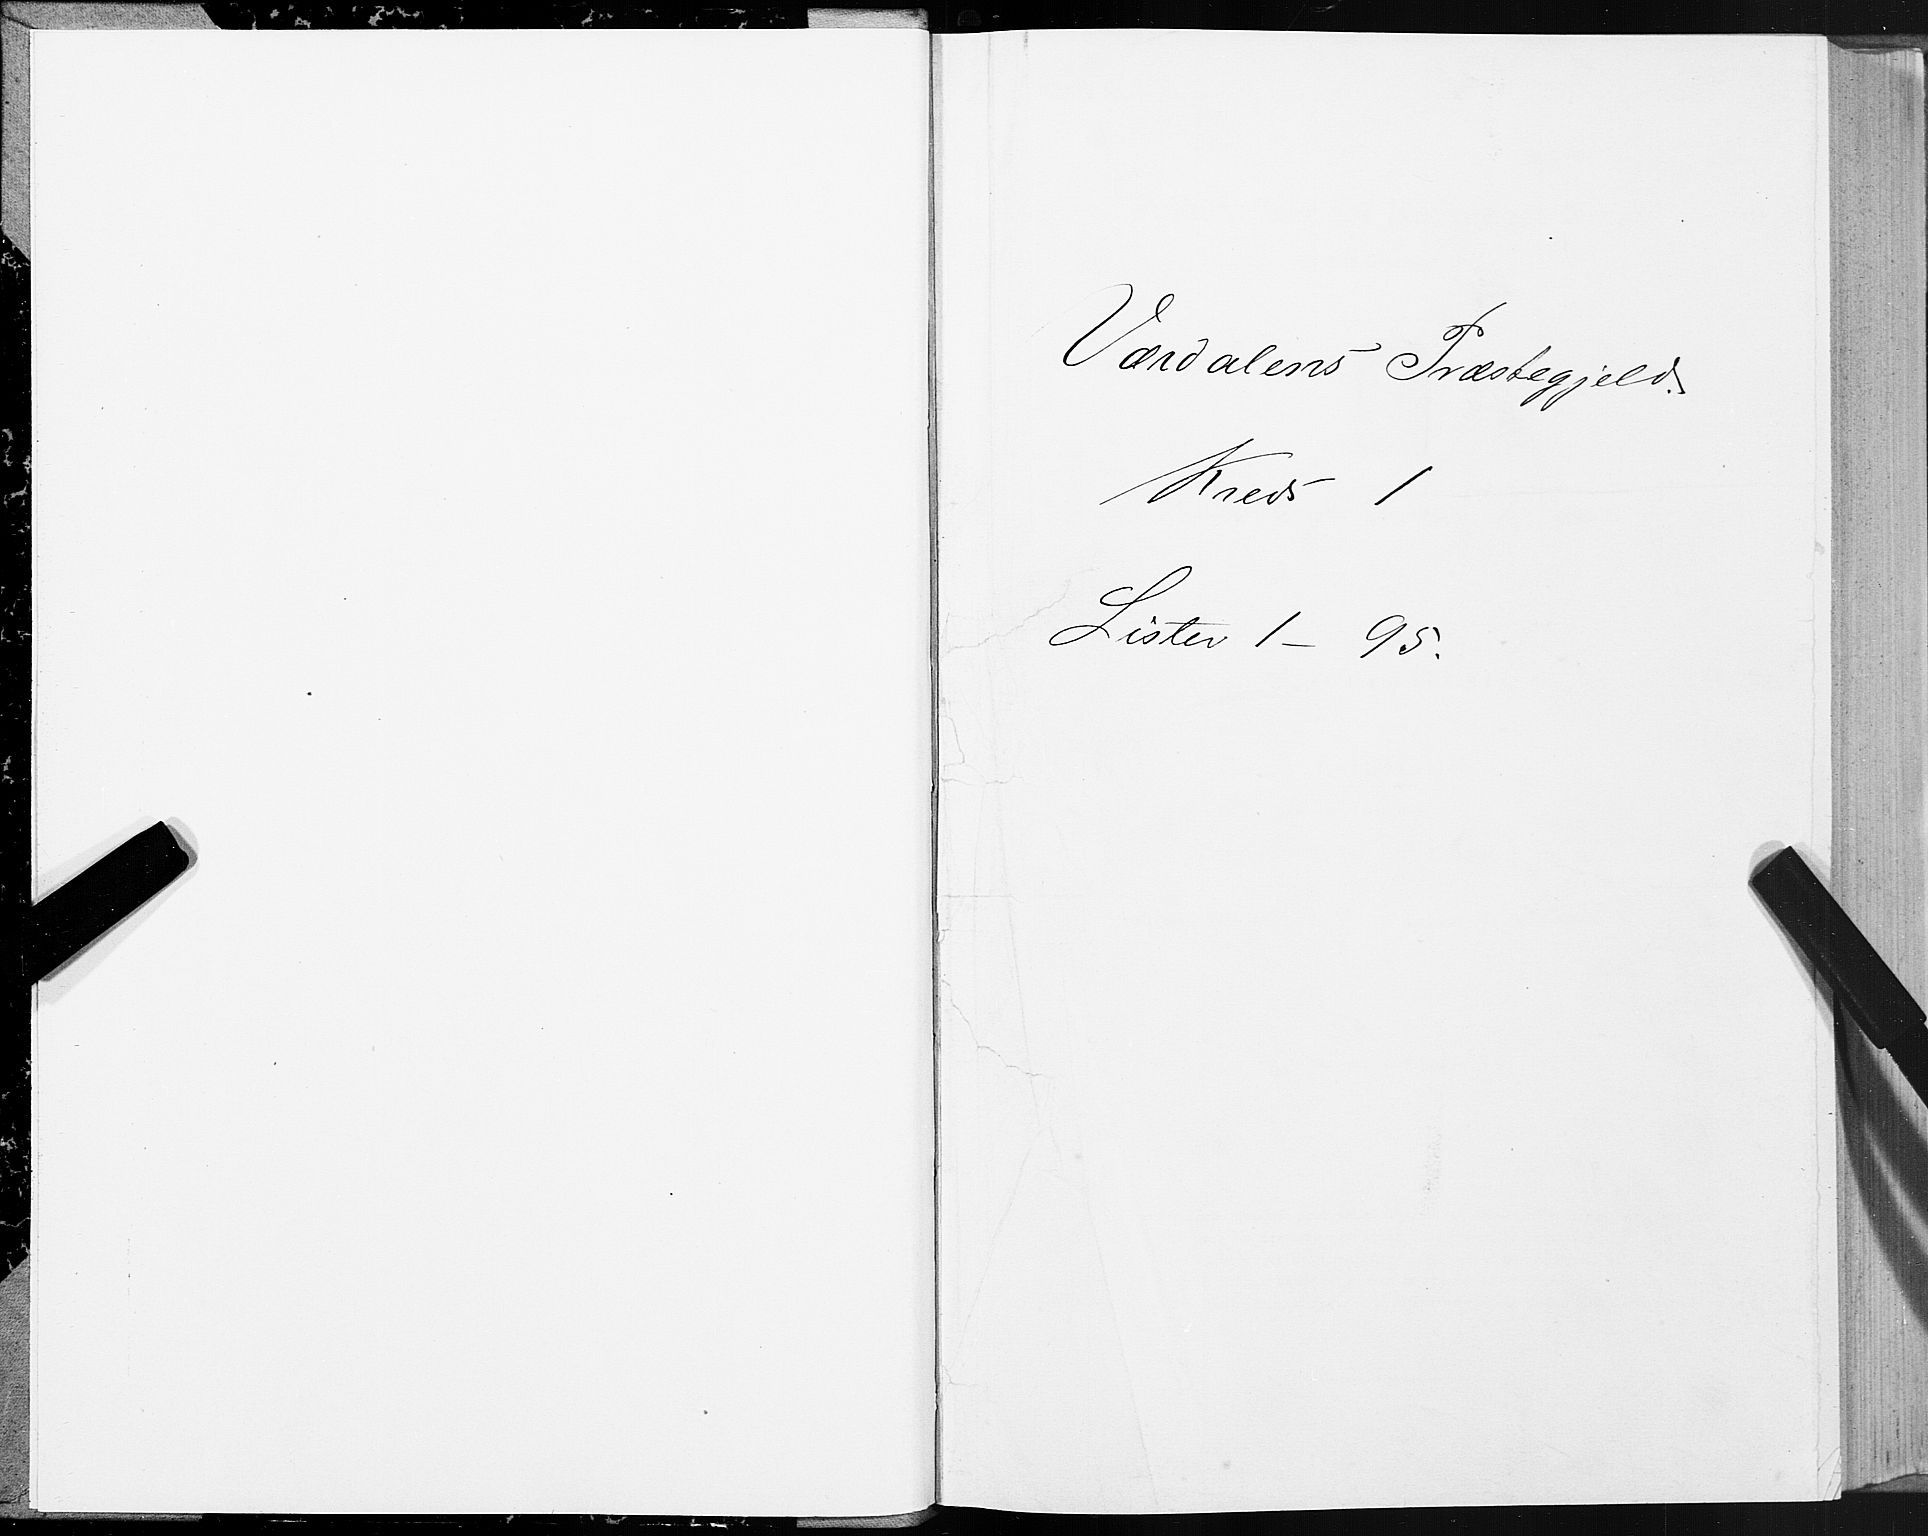 Værdalens Præstegjeld.
Kreds 1
Lister 1 - 95.